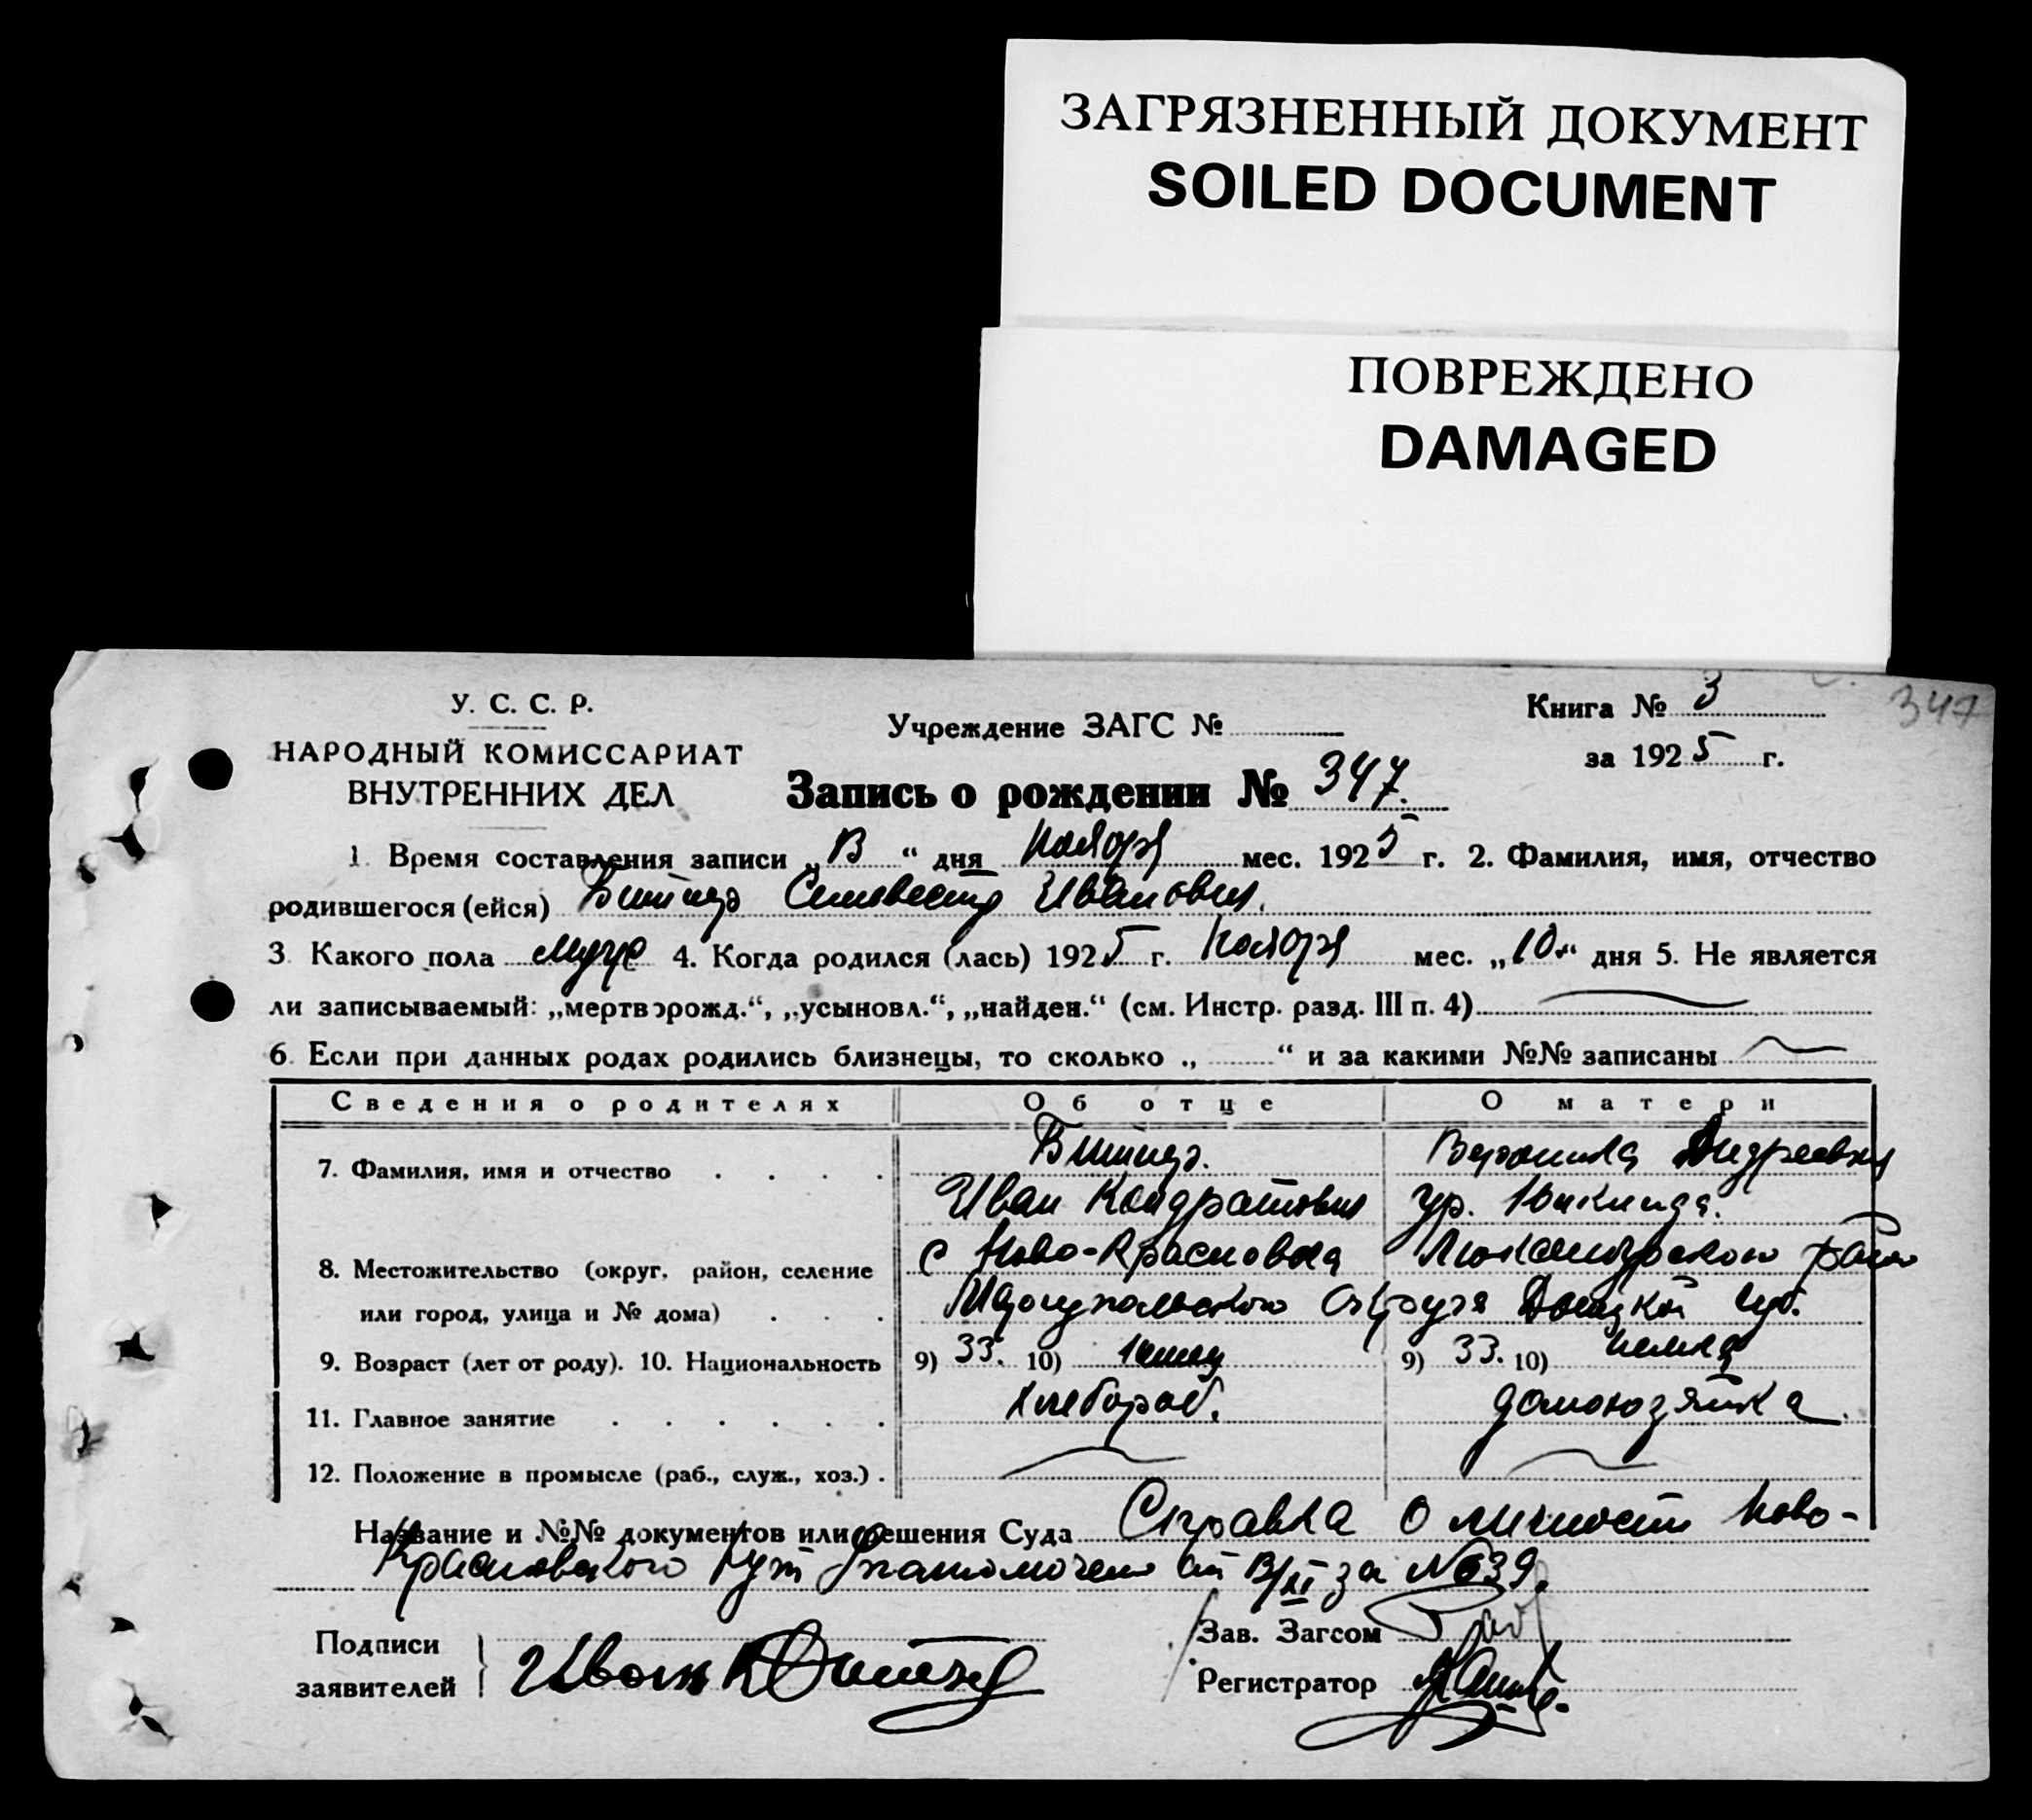 ЗАГРЯЗНЕННЫЙ ДОКУМЕНТ
SOILED DOCUMENT
ПОВРЕЖДЕНО
DAMAGED
У. С. С. Р.
НАРОДНЫЙ КОМИССАРИАТ
ВНУТРЕННИХ ДЕЛ
Учреждение ЗАГС №
Книга № 3
347
за 1925 г.
Запись о рождении № 347.
1. Время составления записи „ “ дня Ноября мес. 1925 г. 2. Фамилия, имя, отчество
родившегося (ейся) Иванович.
3. Какого пола муж 4. Когда родился (лась) 1925 г. Ноября мес. „10“ дня 5. Не является
ли записываемый: „мертворожд.“, „усыновл.“, „найден.“ (см. Инстр. разд. III п. 4)
6. Если при данных родах родились близнецы, то сколько „ “ и за какими №№ записаны
Сведения о родителях Об отце О матери
7. Фамилия, имя и отчество Вероника Андреевна
Иван Кондратович ур.
8. Местожительство (округ, район, селение с Ново-Красновка Люксембургского района
или город, улица и № дома) Мариупольского Округа Донецкой губ.
9. Возраст (лет от роду). 10. Национальность 9) 33. 10) немец 9) 33. 10) немка
11. Главное занятие хлебороб. домохозяйка.
12. Положение в промысле (раб., служ., хоз.)
Название и №№ документов или решения Суда Справка о личности Ново-
Красновского за №
Подписи
заявителей
Иван К
Зав. Загсом
Регистратор